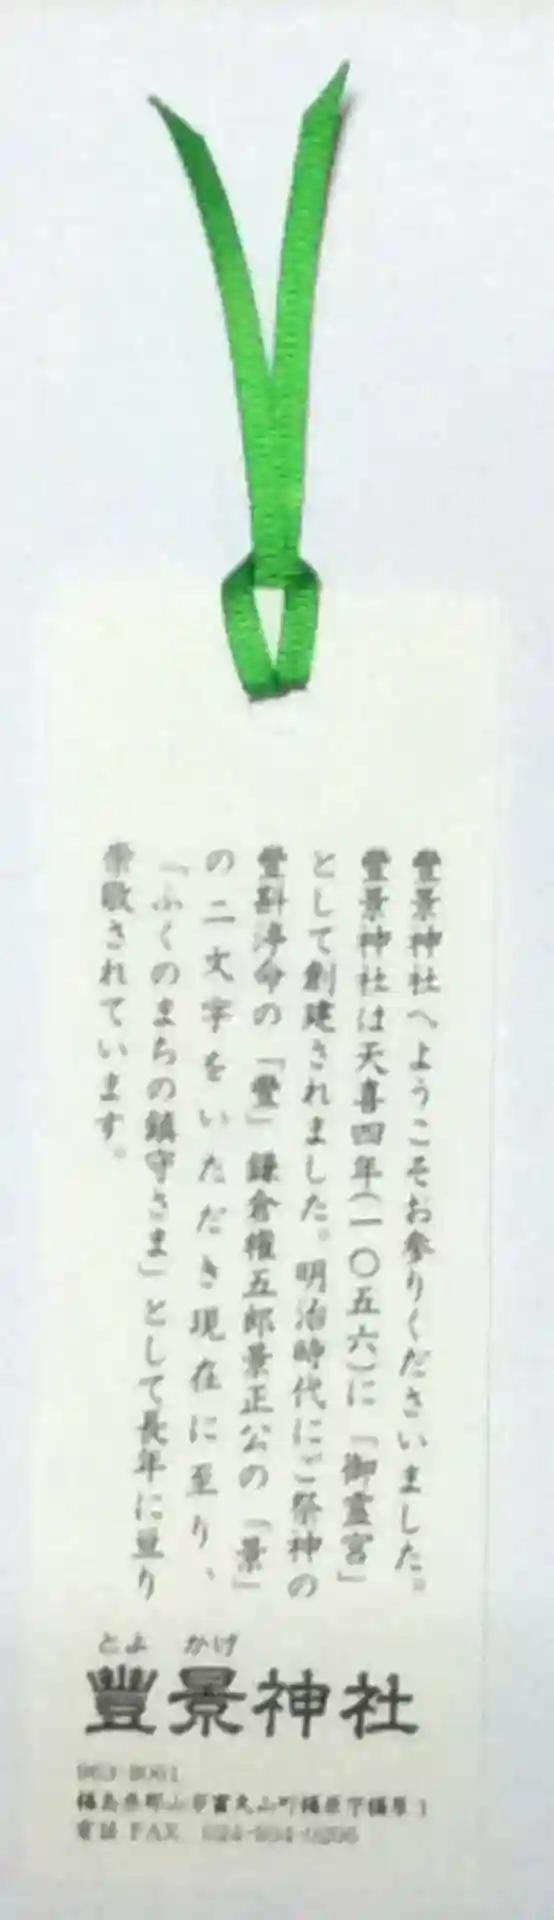 豐景神社へようこそお参りくださいました。
豐景神社は天喜四年(一〇五六)に「御霊宮」
として創建されました。明治時代にご祭神の
豐斟渟命の「豐」鎌倉権五郎景正公の「景」
の二文字をいただき現在に至り、
「ふくのまちの鎮守さま」として長年に亘り
崇敬されています。
とよ かげ
豐景神社
963-8061
福島県郡山市富久山町福原字福原1
電話 FAX